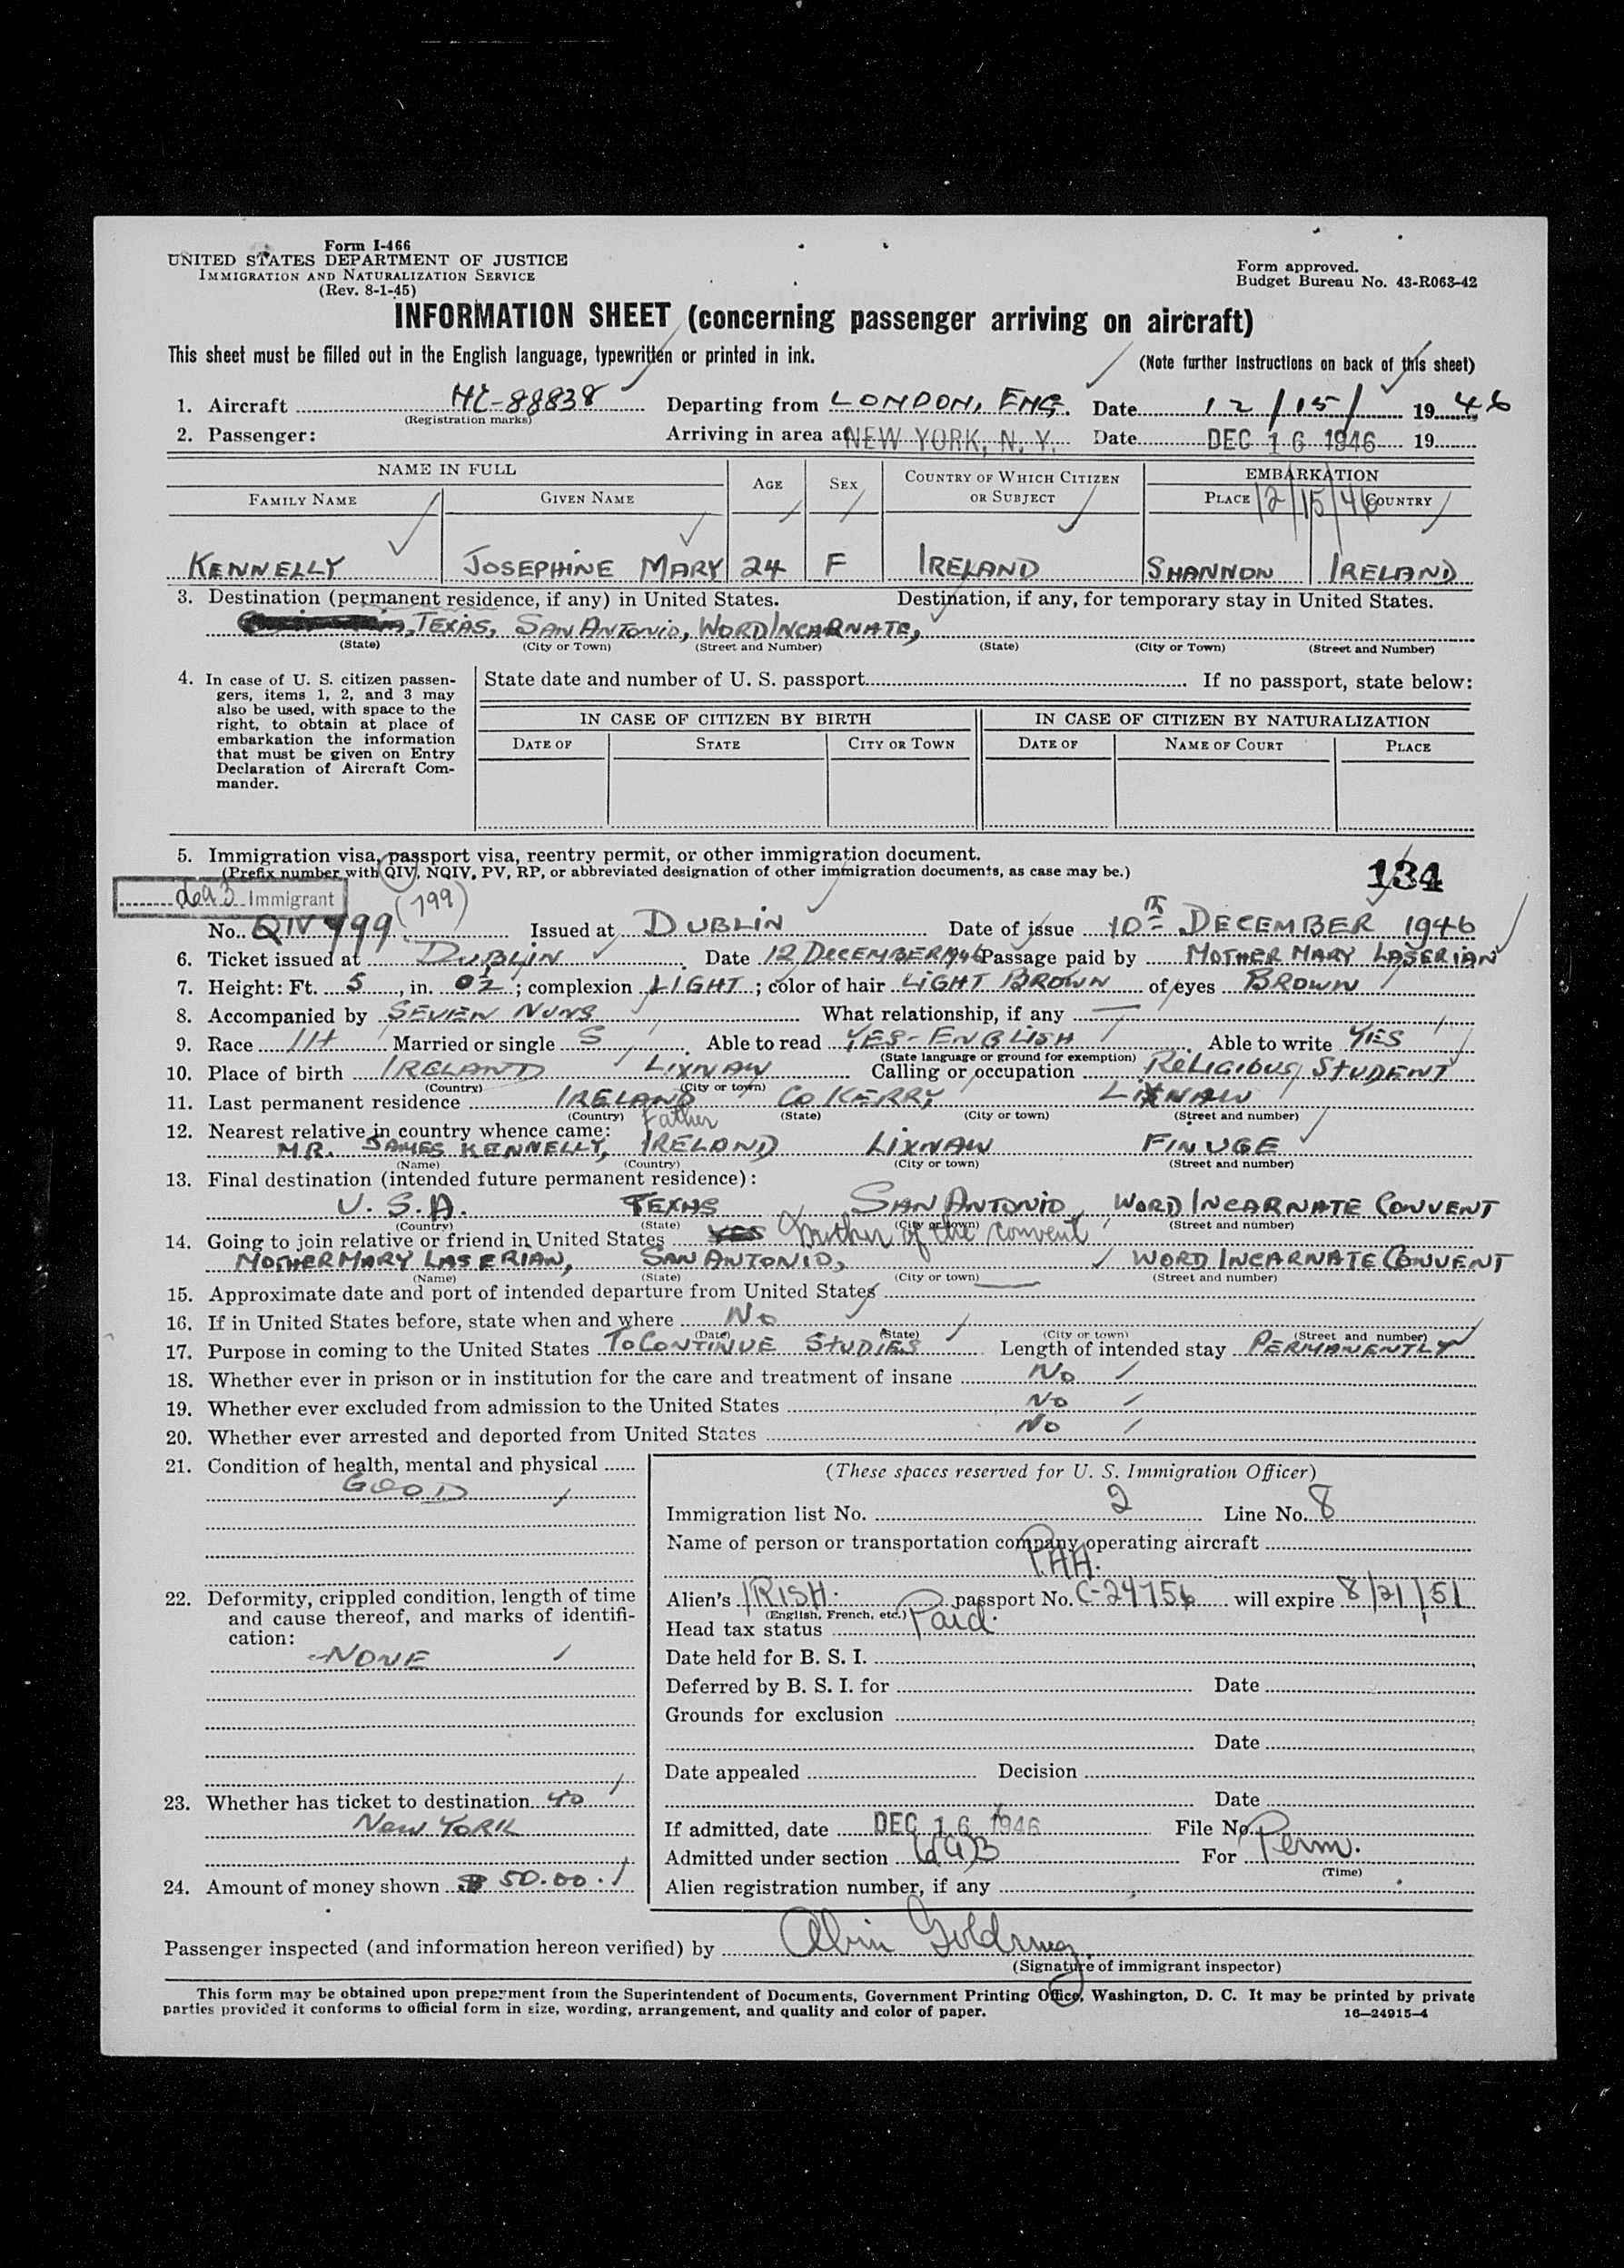 Form I-466
UNITED STATES DEPARTMENT OF JUSTICE
IMMIGRATION AND NATURALIZATION SERVICE
(Rev. 8-1-45)
Form approved.
Budget Bureau No. 43-R063-42
INFORMATION SHEET (concerning passenger arriving on aircraft)
This sheet must be filled out in the English language, typewritten or printed in ink.
(Note further instructions on back of this sheet)
1. Aircraft NC-88838 Departing from LONDON, ENG. Date 12/15/ 1946
(Registration marks)
2. Passenger: Arriving in area at NEW YORK, N. Y. Date DEC 16 1946 19
NAME IN FULL AGE SEX COUNTRY OF WHICH CITIZEN OR SUBJECT EMBARKATION
FAMILY NAME GIVEN NAME PLACE 12/15/46 COUNTRY
KENNELLY JOSEPHINE MARY 24 F IRELAND SHANNON IRELAND
3. Destination (permanent residence, if any) in United States. Destination, if any, for temporary stay in United States.
TEXAS, SAN ANTONIO, WORD INCARNATE,
(State) (City or Town) (Street and Number) (State) (City or Town) (Street and Number)
4. In case of U. S. citizen passengers, items 1, 2, and 3 may also be used, with space to the right, to obtain at place of embarkation the information that must be given on Entry Declaration of Aircraft Commander.
State date and number of U. S. passport If no passport, state below:
IN CASE OF CITIZEN BY BIRTH IN CASE OF CITIZEN BY NATURALIZATION
DATE OF STATE CITY OR TOWN DATE OF NAME OF COURT PLACE
5. Immigration visa, passport visa, reentry permit, or other immigration document.
(Prefix number with QIV, NQIV, PV, RP, or abbreviated designation of other immigration documents, as case may be.)
134
Immigrant (799)
No. QIV 799 Issued at DUBLIN Date of issue 10th DECEMBER 1946
6. Ticket issued at DUBLIN Date 12 DECEMBER 1946 Passage paid by MOTHER MARY LASERIAN
7. Height: Ft. 5, in. 02; complexion LIGHT; color of hair LIGHT BROWN of eyes BROWN
8. Accompanied by SEVEN NUNS What relationship, if any —
9. Race Married or single S Able to read YES-ENGLISH Able to write YES
(State language or ground for exemption)
10. Place of birth IRELAND LIXNAW Calling or occupation RELIGIOUS STUDENT
(Country) (City or town)
11. Last permanent residence IRELAND CO KERRY LIXNAW
(Country) (State) (City or town) (Street and number)
12. Nearest relative in country whence came: Father
MR. JAMES KENNELLY, IRELAND LIXNAW FINUGE
(Name) (Country) (City or town) (Street and number)
13. Final destination (intended future permanent residence):
U. S. A. TEXAS SAN ANTONIO, WORD INCARNATE CONVENT
(Country) (State) (City or town) (Street and number)
14. Going to join relative or friend in United States YES Mother of the convent
MOTHER MARY LASERIAN, SAN ANTONIO, WORD INCARNATE CONVENT
(Name) (State) (City or town) (Street and number)
15. Approximate date and port of intended departure from United States —
16. If in United States before, state when and where No
(Date) (State) (City or town) (Street and number)
17. Purpose in coming to the United States TO CONTINUE STUDIES Length of intended stay PERMANENTLY
18. Whether ever in prison or in institution for the care and treatment of insane No
19. Whether ever excluded from admission to the United States No
20. Whether ever arrested and deported from United States No
21. Condition of health, mental and physical
GOOD
22. Deformity, crippled condition, length of time and cause thereof, and marks of identification:
NONE
23. Whether has ticket to destination to
NEW YORK
24. Amount of money shown $ 50.00.
(These spaces reserved for U. S. Immigration Officer)
Immigration list No. 2 Line No. 8
Name of person or transportation company operating aircraft
PAA.
Alien's IRISH passport No. C-24756 will expire 8/21/51
(English, French, etc.)
Head tax status Paid.
Date held for B. S. I.
Deferred by B. S. I. for Date
Grounds for exclusion
Date
Date appealed Decision
Date
If admitted, date DEC 16 1946 File No.
Admitted under section For Perm.
(Time)
Alien registration number, if any
Passenger inspected (and information hereon verified) by
(Signature of immigrant inspector)
This form may be obtained upon prepayment from the Superintendent of Documents, Government Printing Office, Washington, D. C. It may be printed by private
parties provided it conforms to official form in size, wording, arrangement, and quality and color of paper.
16—24915-4